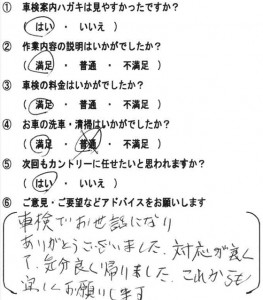 ① 車検案内ハガキは見やすかったですか？
（ はい ・ いいえ ）
② 作業内容の説明はいかがでしたか？
（ 満足 ・ 普通 ・ 不満足 ）
③ 車検の料金はいかがでしたか？
（ 満足 ・ 普通 ・ 不満足 ）
④ お車の洗車・清掃はいかがでしたか？
（ 満足 ・ 普通 ・ 不満足 ）
⑤ 次回もカントリーに任せたいと思われますか？
（ はい ・ いいえ ）
⑥ ご意見・ご要望などアドバイスをお願いします
車検でお世話になり
ありがとうございました。対応が良く
て、気分良く帰りました。これからも
宜しくお願いします